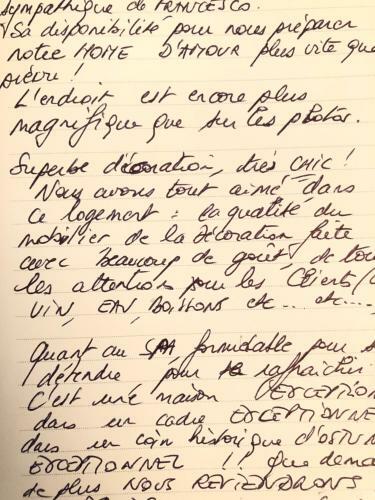 sympathique de FRANCESCO.
Sa disponibilité pour nous préparer
notre HOME D'AMOUR plus vite que
prévu !
L'endroit est encore plus
magnifique que sur les photos.
Superbe décoration, très CHIC !
Nous avons tout aimé dans
ce logement : la qualité du
mobilier de la décoration faite
avec beaucoup de goût, de tou
les attentions pour les Clients (
VIN, EAU, BOISSONS etc... etc...,
Quant au SPA, formidable pour s
détendre pour se rafraîchir
C'est une maison EXCEPTION
dans un cadre EXCEPTIONNE
dans un coin historique d'OSTUN
EXCEPTIONNEL !! Que dema
de plus NOUS REVIENDRONS